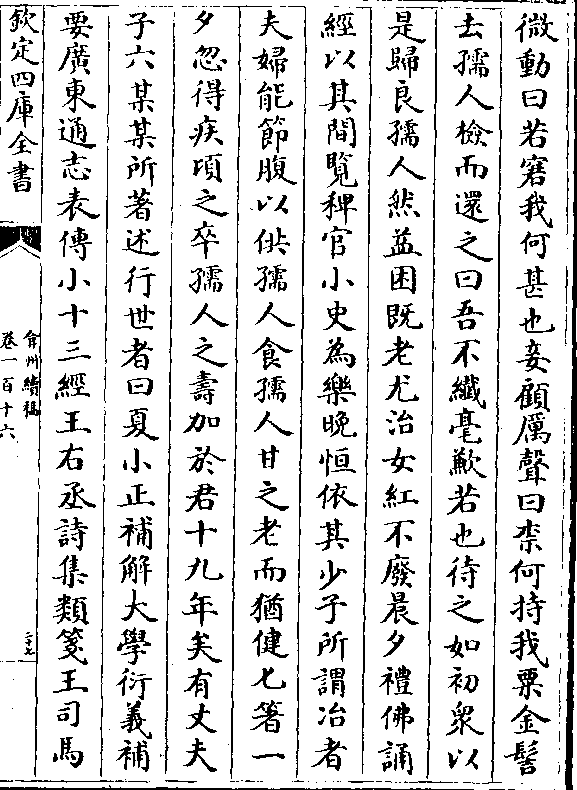 微動曰若窘我何甚也妾顧厲聲曰柰何持我粟金髻
去孺人檢而還之曰吾不纎毫歉若也待之如初衆以
是歸良孺人然益困既老尤治女紅不廢晨夕禮佛誦
經以其間覽稗官小史為樂晩恒依其少子所謂冶者
夫婦能節腹以供孺人食孺人甘之老而猶健匕箸一
夕忽得疾頃之卒孺人之壽加於君十九年矣有丈夫
子六某某所著述行世者曰夏小正補解大學衍義補
要廣東通志表傳小十三經王右丞詩集類箋王司馬
欽定四庫全書
弇州續稿
卷一百十六